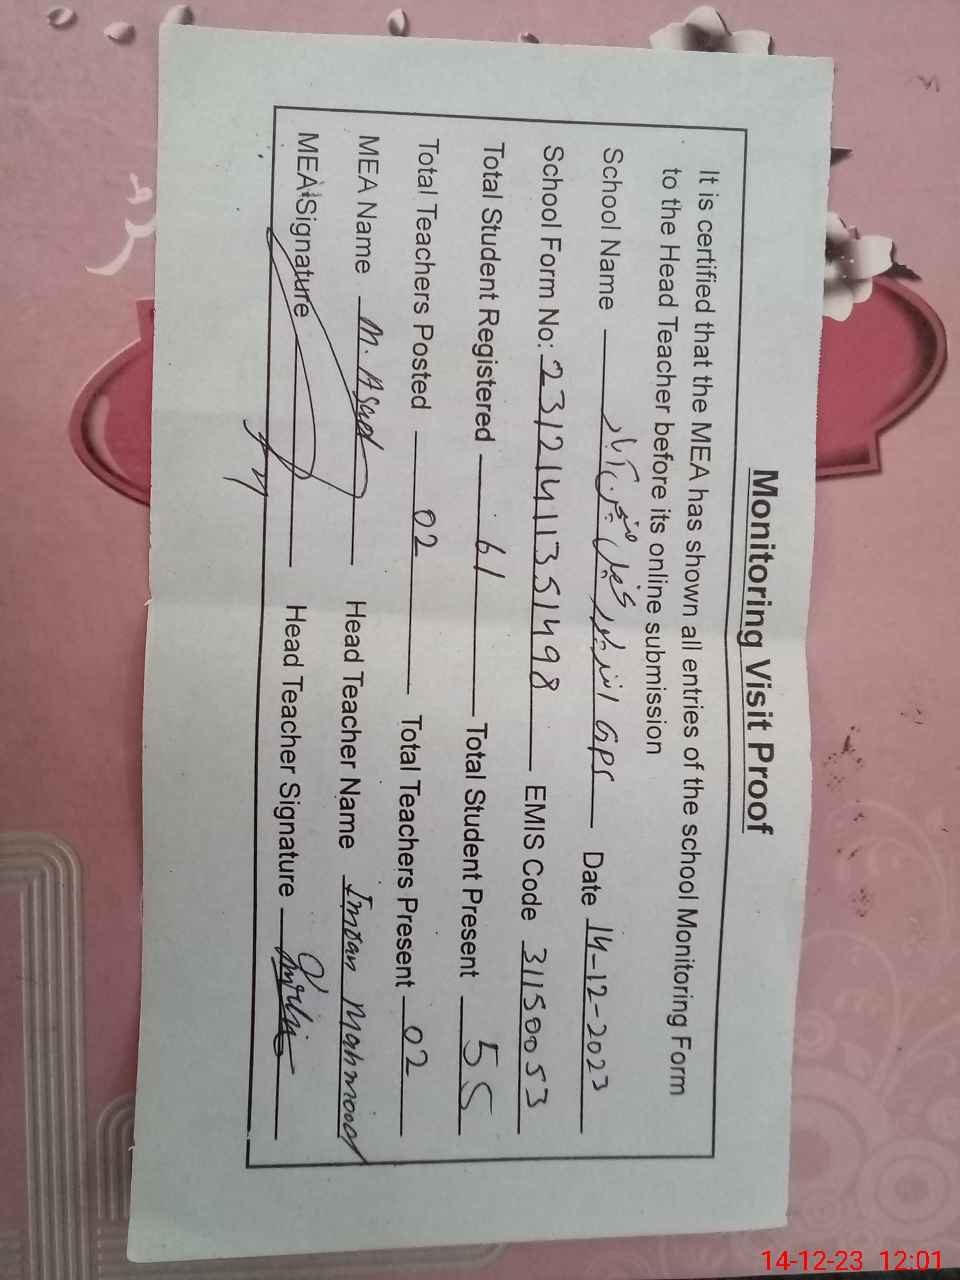 Monitoring Visit Proof
It is certified that the MEA has shown all entries of the school Monitoring Form
to the Head Teacher before its online submission
School Name GPS Date 14-12-2023
School Form No: 23121411351498 EMIS Code 31150053
Total Student Registered 61 Total Student Present 55
Total Teachers Posted 02 Total Teachers Present 02
MEA Name M. Asad Head Teacher Name Imran Mahmood
MEA Signature Head Teacher Signature
14-12-23 12:01